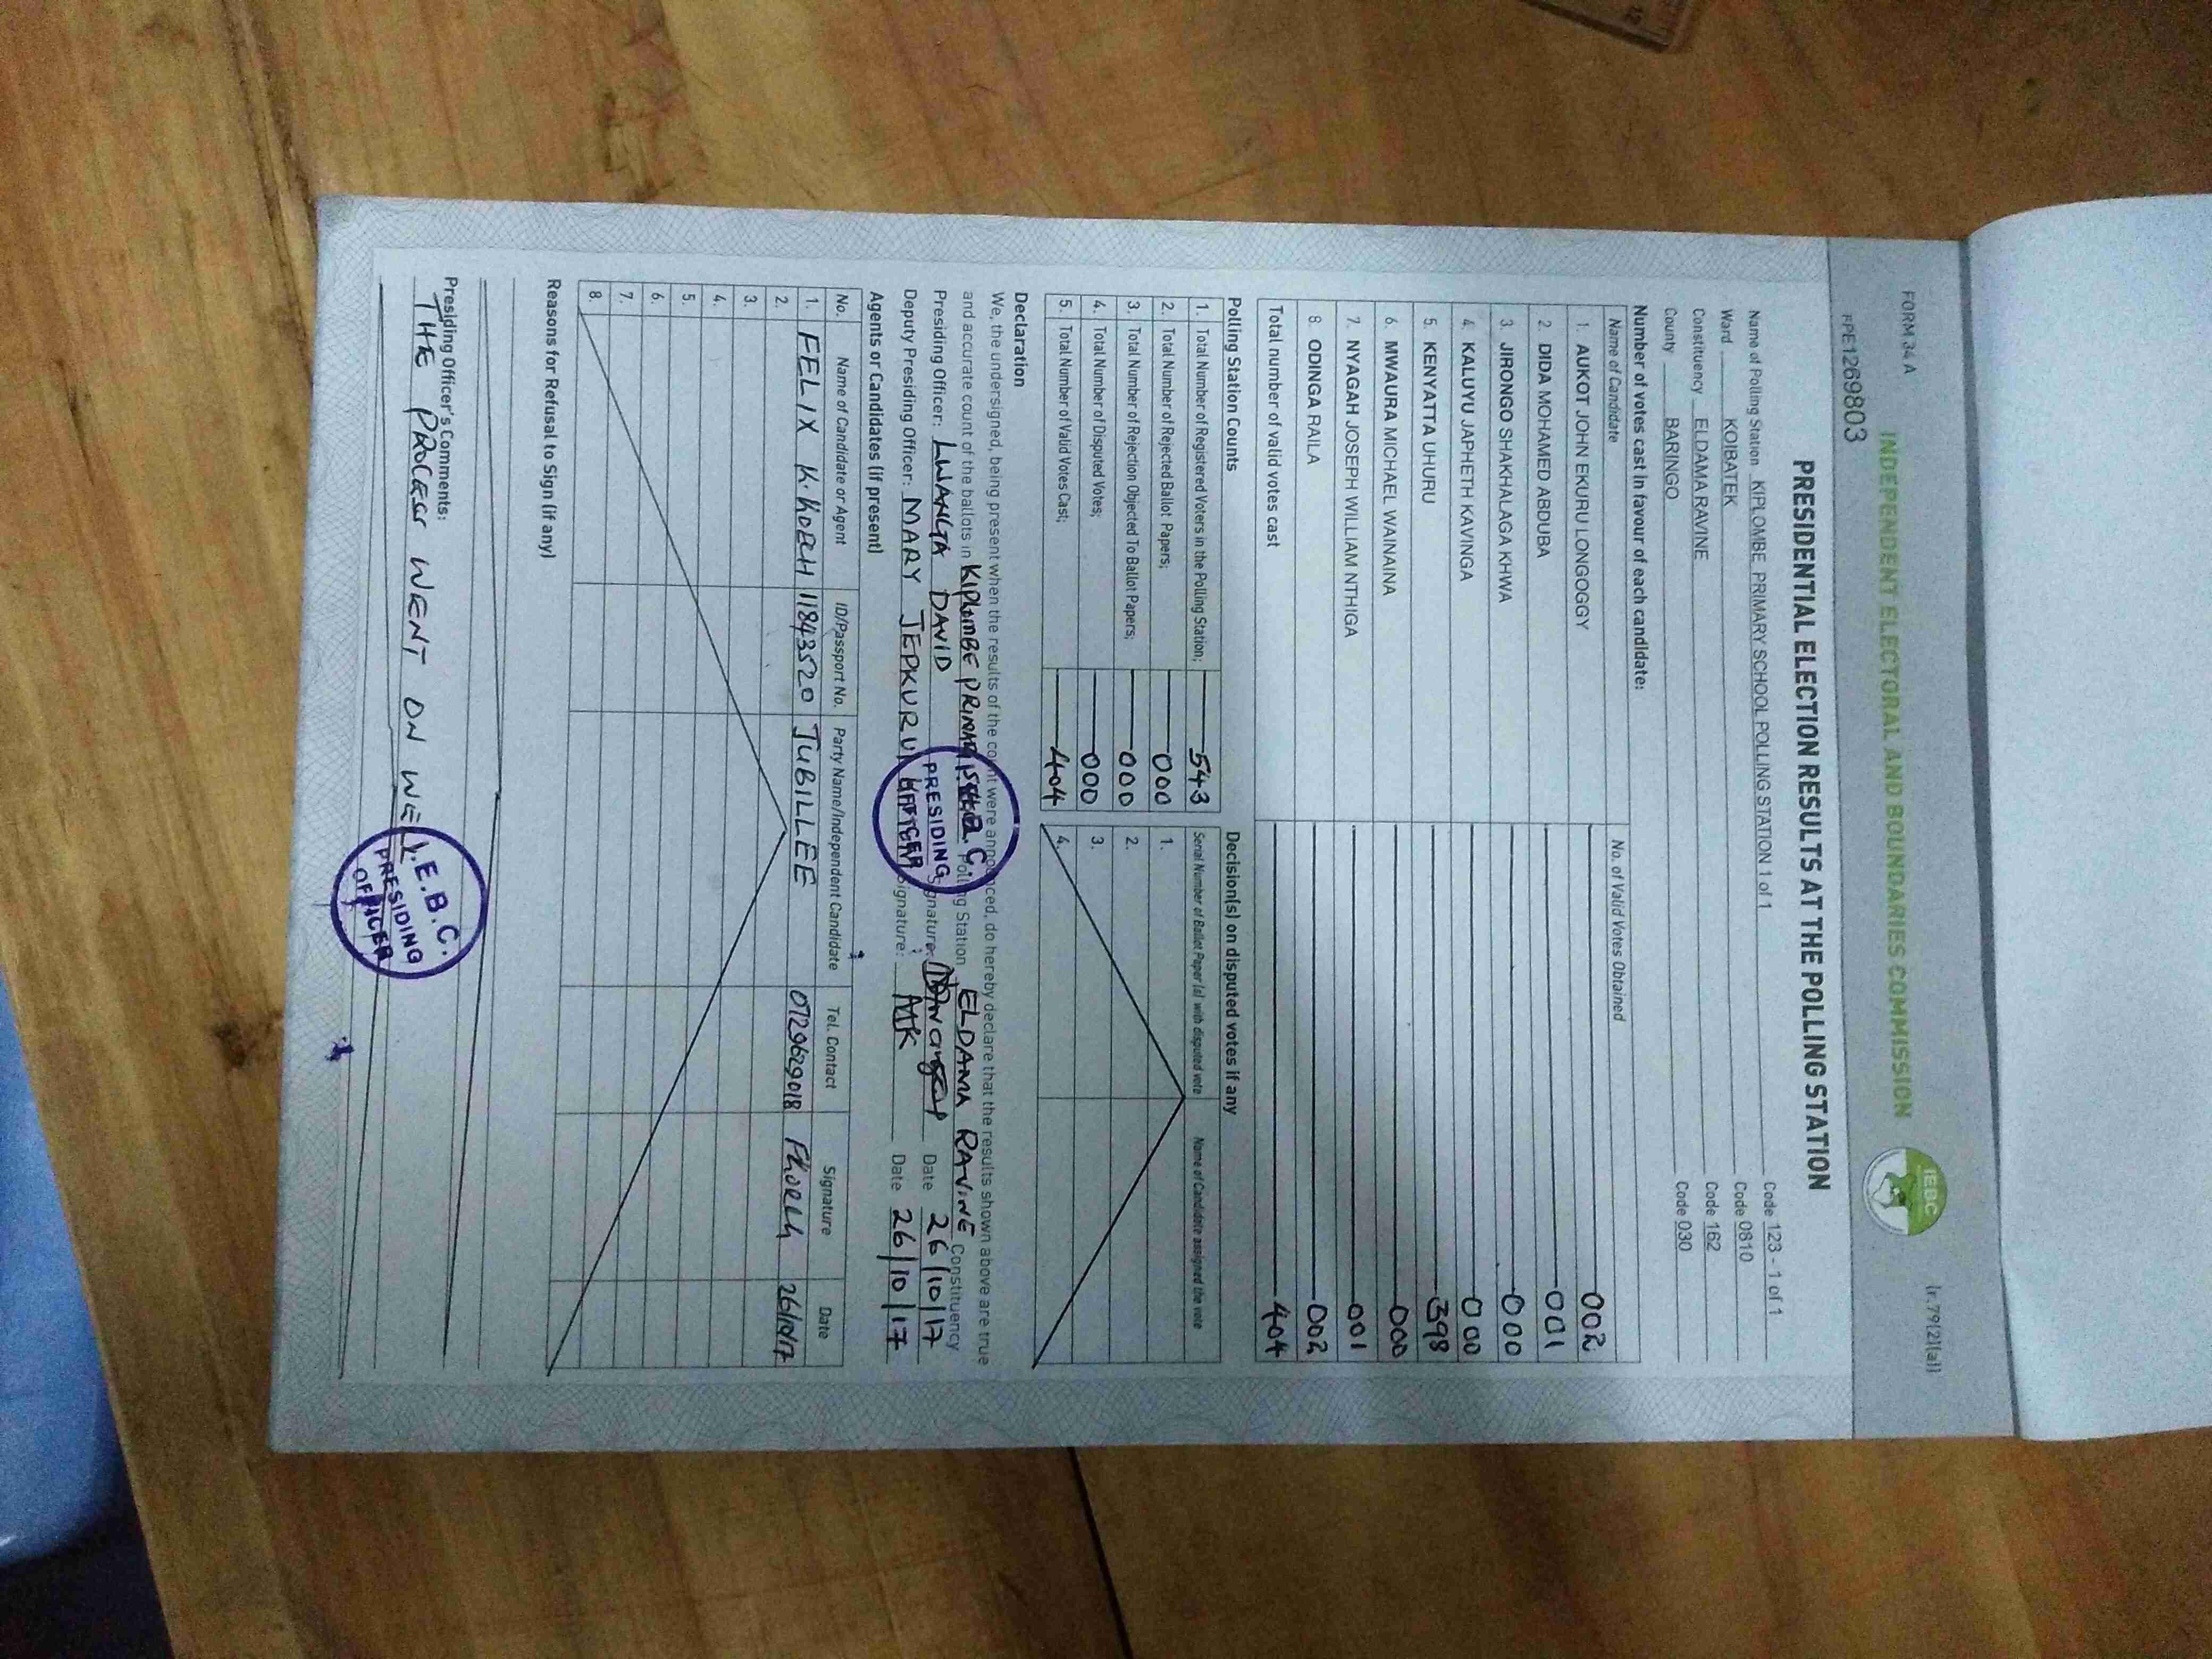 FORM 34 A
(r.79(2)(a))
INDEPENDENT ELECTORAL AND BOUNDARIES COMMISSION
IEBC
PE1269803
PRESIDENTIAL ELECTION RESULTS AT THE POLLING STATION
Name of Polling Station KIPLOMBE PRIMARY SCHOOL POLLING STATION 1 of 1 Code 123 - 1 of 1
Ward KOIBATEK Code 0810
Constituency ELDAMA RAVINE Code 162
County BARINGO Code 030
Number of votes cast in favour of each candidate:
Name of Candidate No. of Valid Votes Obtained
1. AUKOT JOHN EKURU LONGOGGY 002
2. DIDA MOHAMED ABDUBA 001
3. JIRONGO SHAKHALAGA KHWA 000
4. KALUYU JAPHETH KAVINGA 000
5. KENYATTA UHURU 398
6. MWAURA MICHAEL WAINAINA 000
7. NYAGAH JOSEPH WILLIAM NTHIGA 001
8. ODINGA RAILA 002
Total number of valid votes cast 404
Polling Station Counts
1. Total Number of Registered Voters in the Polling Station; 543
2. Total Number of Rejected Ballot Papers; 000
3. Total Number of Rejection Objected To Ballot Papers; 000
4. Total Number of Disputed Votes; 000
5. Total Number of Valid Votes Cast; 404
Decision(s) on disputed votes if any
Serial Number of Ballot Paper (s) with disputed vote Name of Candidate assigned the vote
1.
2.
3.
4.
Declaration
We, the undersigned, being present when the results of the count were announced, do hereby declare that the results shown above are true
and accurate count of the ballots in KIPLOMBE PRIMARY Polling Station ELDAMA RAVINE Constituency
Presiding Officer: LWANGA DAVID Signature: Date 26/10/17
Deputy Presiding Officer: MARY JEPKURUI Signature: MK Date 26/10/17
PRESIDING OFFICER
Agents or Candidates (if present)
No. Name of Candidate or Agent ID/Passport No. Party Name/Independent Candidate Tel. Contact Signature Date
1. FELIX K. KOECH 11843520 JUBILLEE 0729629018 FKoech 26/10/17
2.
3.
4.
5.
6.
7.
8.
Reasons for Refusal to Sign (if any)
Presiding Officer's Comments:
THE PROCESS WENT ON WELL
I.E.B.C.
PRESIDING
OFFICER